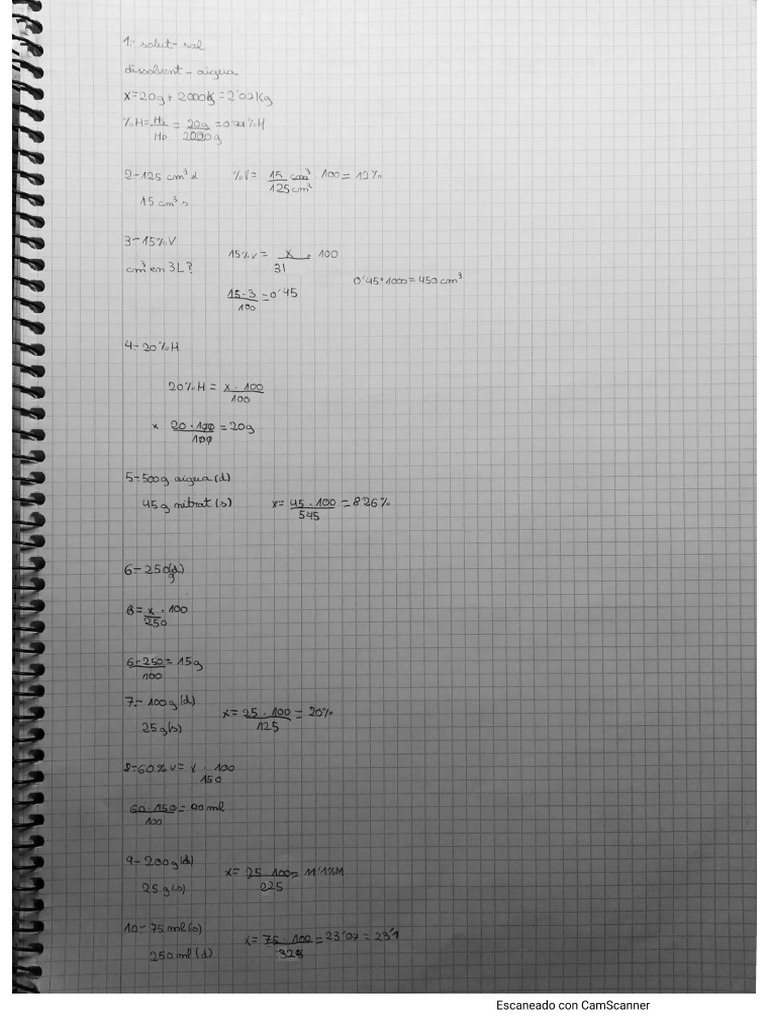 1.- solut - sal
dissolvent - aigua
x=20g + 2000g = 2'02Kg
%M= Ms/MD = 20g/2000g =
2-125 cm³ d %V= 15 cm³/125 cm³ 100 = 12%
15 cm³ s
3-15%V 15%v = x/3l . 100
cm³ en 3L? 0'45*1000 = 450 cm³
15·3/100 = 0'45
4-20%M
20%M = x · 100/100
x 20 · 100/100 = 20g
5-500g aigua (d)
45g nitrat (s) x= 45 · 100/545 = 826%
6- 250g(d)
6= x/250 · 100
6·250/100 = 15g
7.- 100g (d) x= 25 · 100/125 = 20%
25g(s)
8-60%v= x · 100/150
60·150/100 = 90 ml
9- 200g(d) x= 25 · 100/225 = 11'1%M
25 g(s)
10- 75 ml(s) x= 75 · 100/325 = 23'07 = 23'1
250 ml (d)
Escaneado con CamScanner